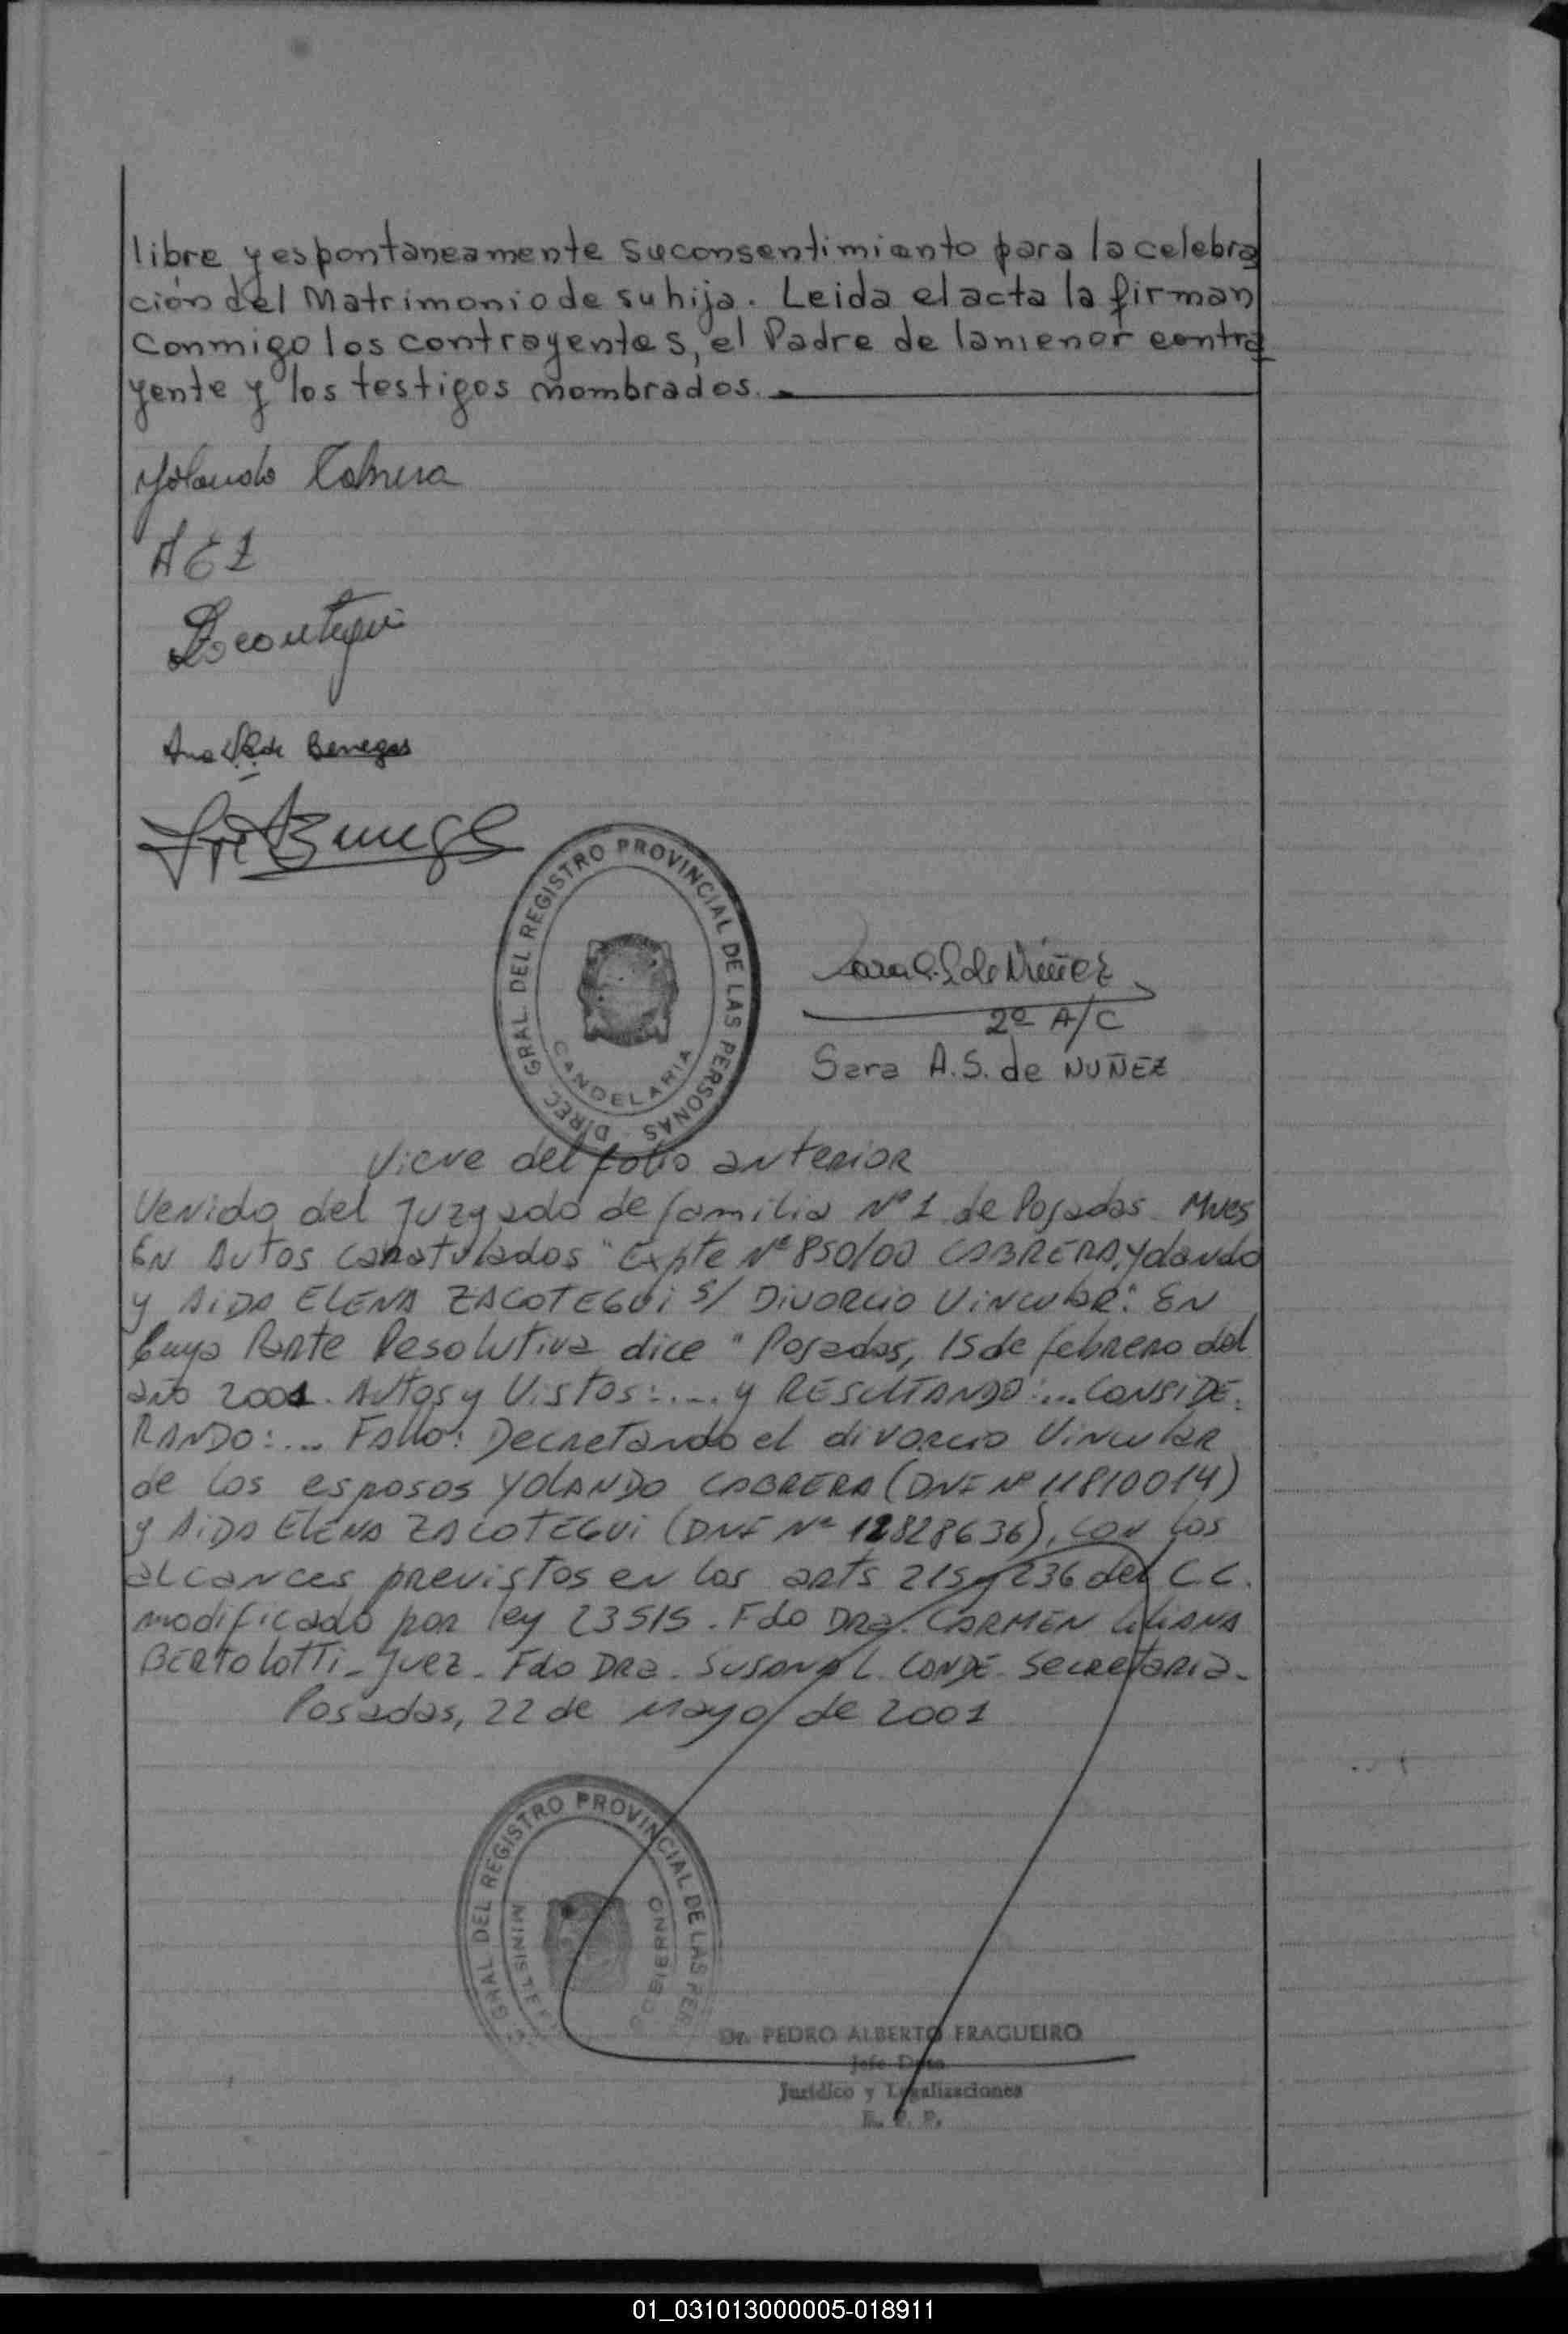 libre y espontaneamente su consentimiento para la celebra
ción del Matrimonio de su hija. Leida el acta la firman
Conmigo los contrayentes, el Padre de la menor contra
yente y los testigos nombrados.
Yolando Cabrera
A E Z
Zacoutegui
Ana de Benegas
Sara A. S. de Nuñez
2º A/C
Sara A.S. de NUÑEZ
DIREC. GRAL. DEL REGISTRO PROVINCIAL DE LAS PERSONAS
CANDELARIA
Viene del folio anterior
Venido del Juzgado de familia Nº 1 de Posadas Mnes
EN Autos "Expte Nº 850/00 CABRERA, Yolando
y AiDA ELENA ZACOTEGUi S/ Divorcio Vincular". EN
Cuya Parte Resolutiva dice "Posadas, 15 de febrero del
año 2001. Autos y Vistos:.... y RESULTANDO:... CONSIDE-
RANDO:... Fallo: Decretando el divorcio Vincular
de los esposos YOLANDO CABRERA (DNI Nº 11810014)
y AiDA ELENA ZACOTEGUi (DNI Nº 12828636), con los
alcances previstos en los arts 215 y 236 del C.C.
modificado por ley 23515. Fdo DRa. CARMEN LILIANA
BERTOLOTTi - Juez - Fdo DRa. SUSANA L. CONDE - Secretaria -
Posadas, 22 de Mayo de 2001
GRAL. DEL REGISTRO PROVINCIAL DE LAS PER
GOBIERNO
Dr. PEDRO ALBERTO FRAGUEIRO
Jefe Dpto.
Jurídico y Legalizaciones
R. P. P.
01_031013000005-018911